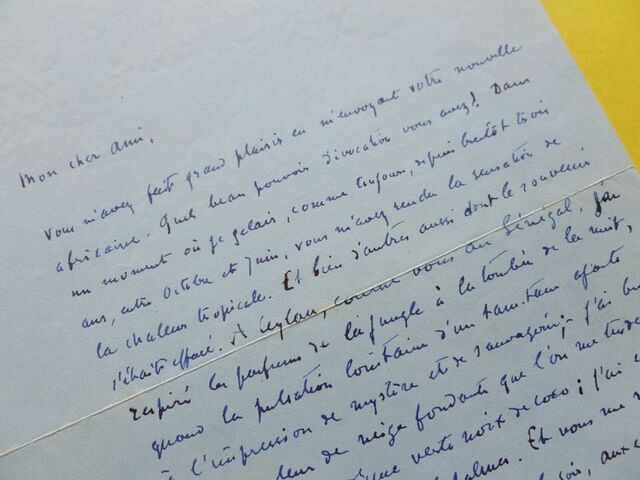 Mon cher ami,
vous m'avez fait grand plaisir en m'envoyant votre nouvelle
africaine. Quel beau pouvoir d'évocation vous avez! Dans
un moment où je gelais, comme toujours, depuis bientôt trois
ans, entre Octobre et Juin, vous m'avez rendu la sensation de
la chaleur tropicale. Et bien d'autres aussi dont le souvenir
s'était effacé. A Ceylan, comme vous au Sénégal, j'ai
respiré les parfums de la jungle à la tombée de la nuit,
quand la pulsation lointaine d'un tam-tam ajoute
à l'impression de mystère et de sauvagerie; j'ai bu
de neige fondante que l'on me
verte noix de coco; j'ai
Et vous me